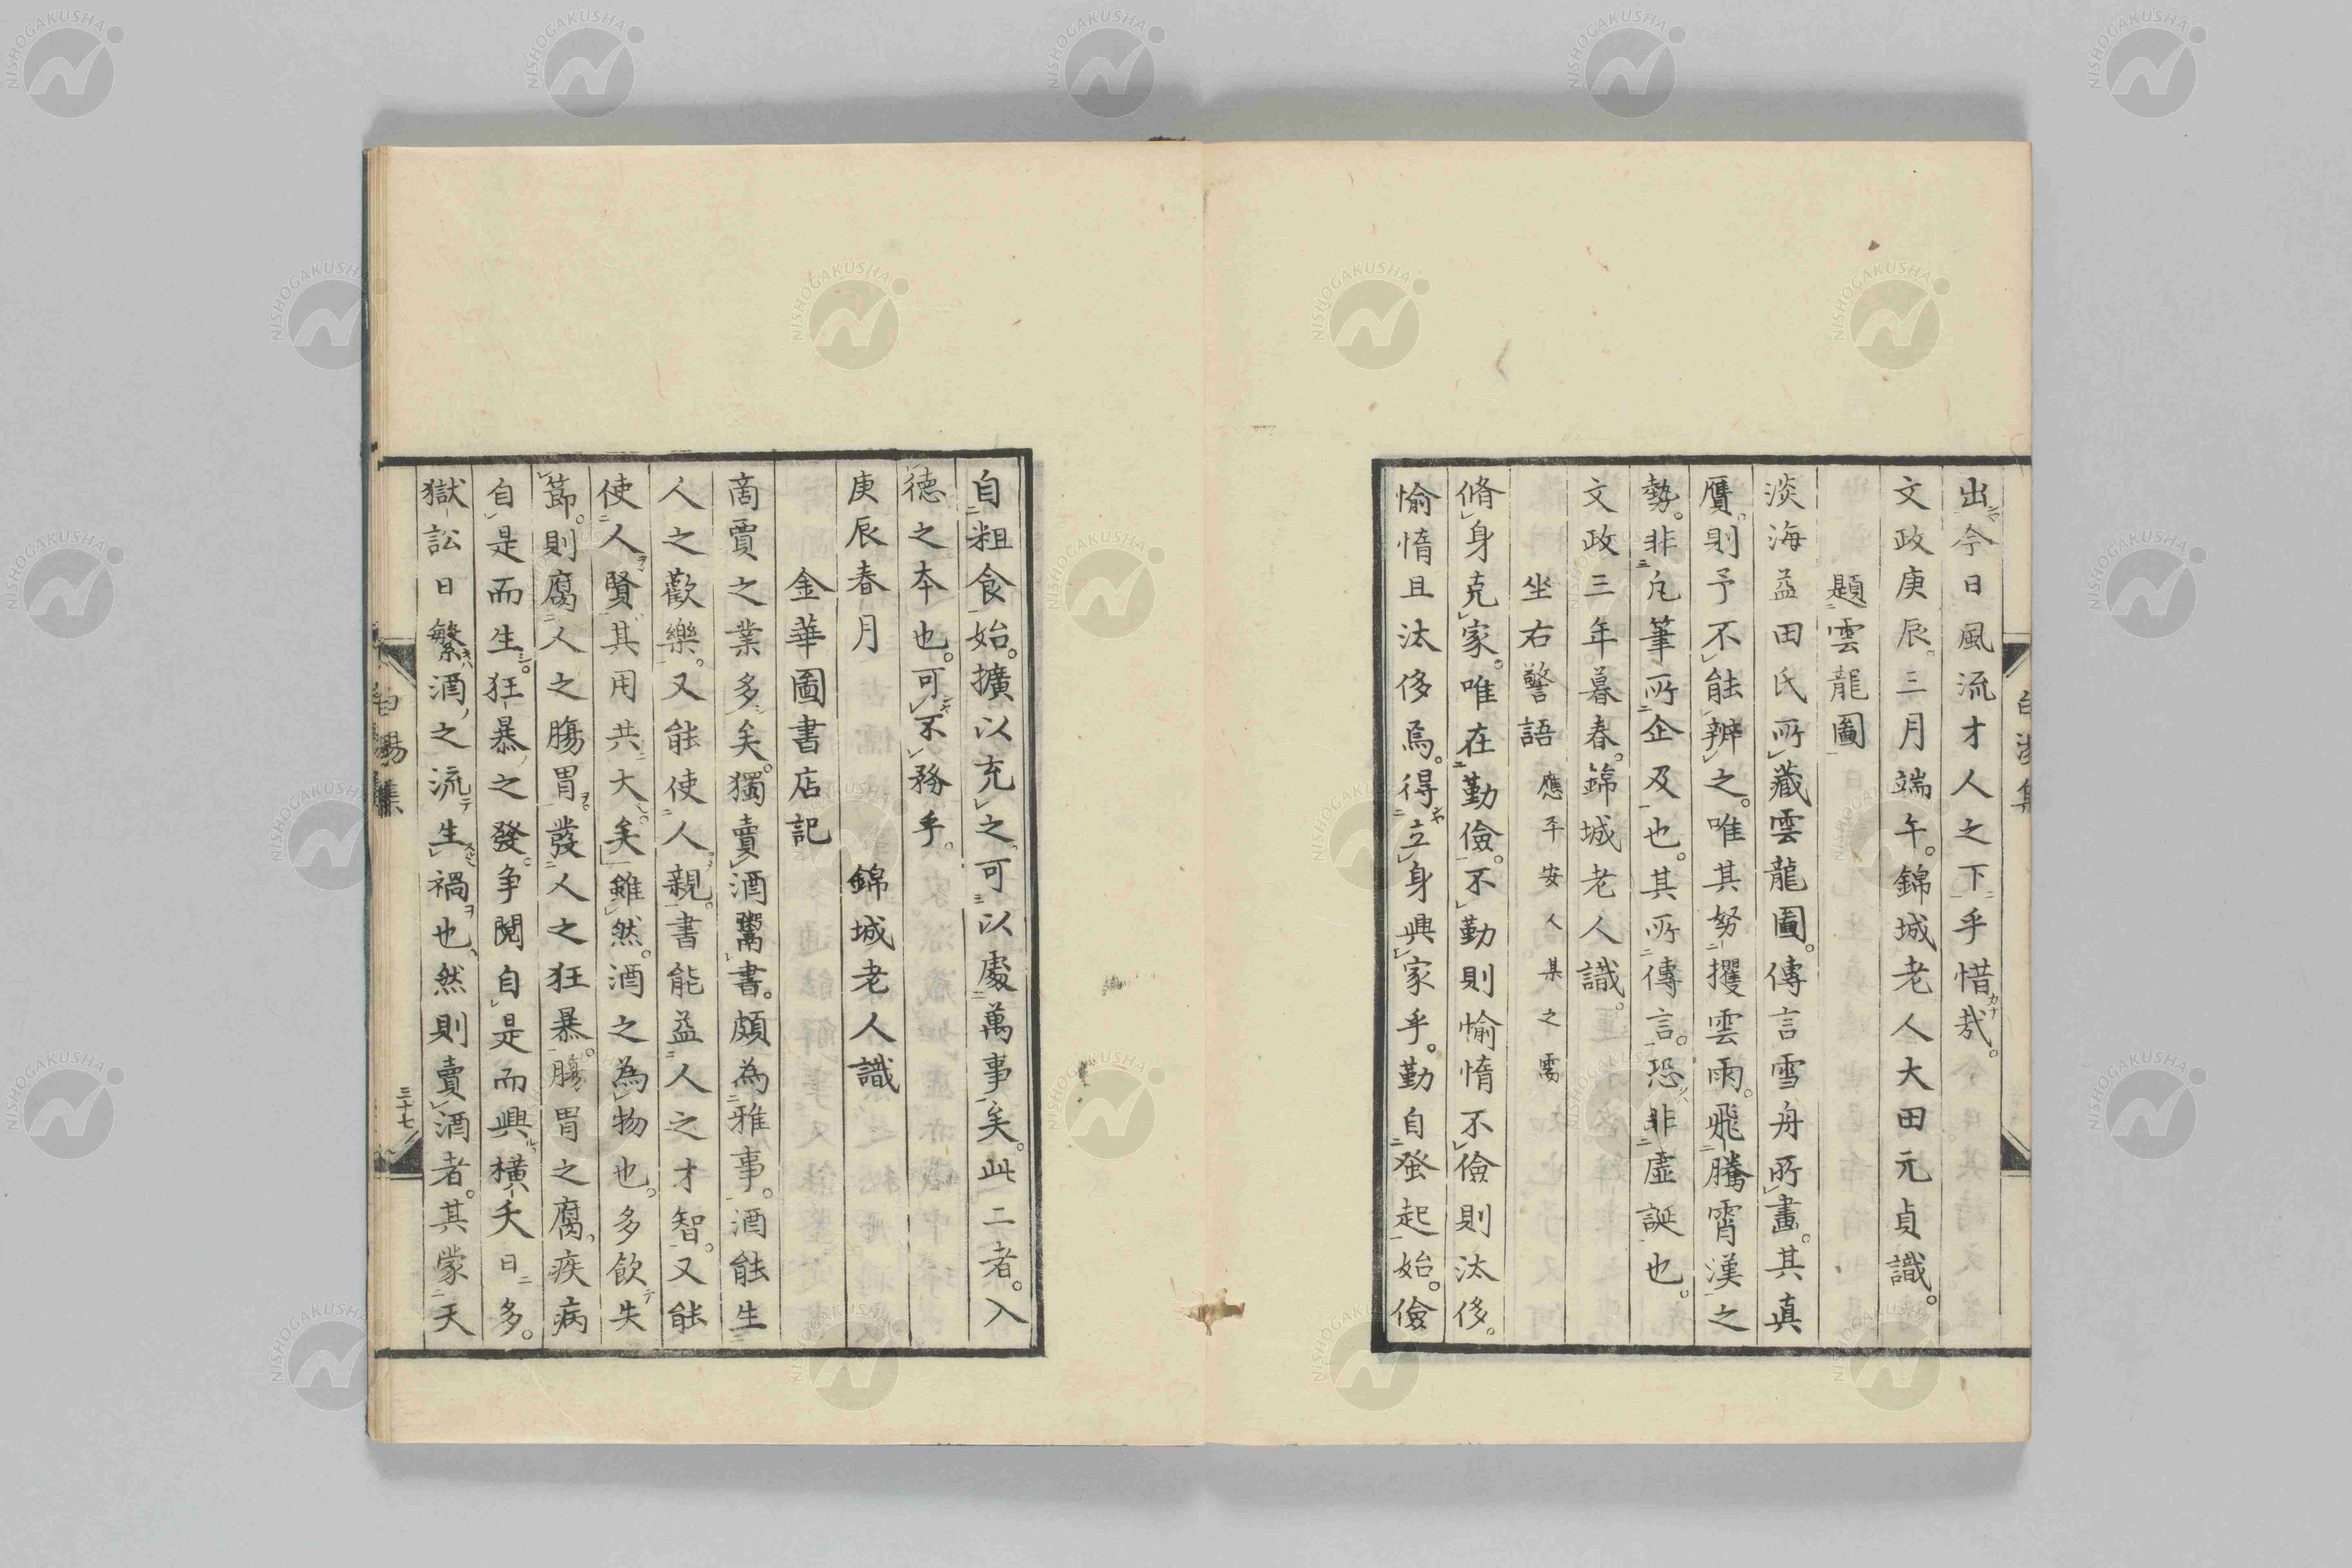 出今日風流才人之下乎惜哉。
文政庚辰。三月端午。錦城老人大田元貞識。
題雲龍圖
淡海益田氏所藏雲龍圖。傳言雪舟所畫。其真
贋。則予不能辨之。唯其努攫雲雨。飛騰霄漢之
勢。非凢筆所企及也。其所傳言。恐非虛誕也。
文政三年暮春。錦城老人識。
坐右警語 應平安人某之需
脩身克家。唯在勤儉。不勤則愉惰不儉則汰侈。
愉惰且汰侈焉。得立身興家乎。勤自蚤起始。儉
自粗食始。擴以充之可以處萬事矣。此二者。入
徳之本也。可不務乎。
庚辰春月 錦城老人識
金華圖書店記
商賈之業多矣。獨賣酒鬻書。頗為雅事。酒能生
人之歡樂。又能使人親。書能益人之才智。又能
使人賢其用共大矣。雖然。酒之為物也。多飲失
節。則腐人之腸胃。發人之狂暴。腸胃之腐。疾病
自是而生。狂暴之發。争鬩自是而興橫夭日多。
獄訟日繁酒之流生禍也、然則賣酒者。其蒙天
三十七
NISHOGAKUSHA